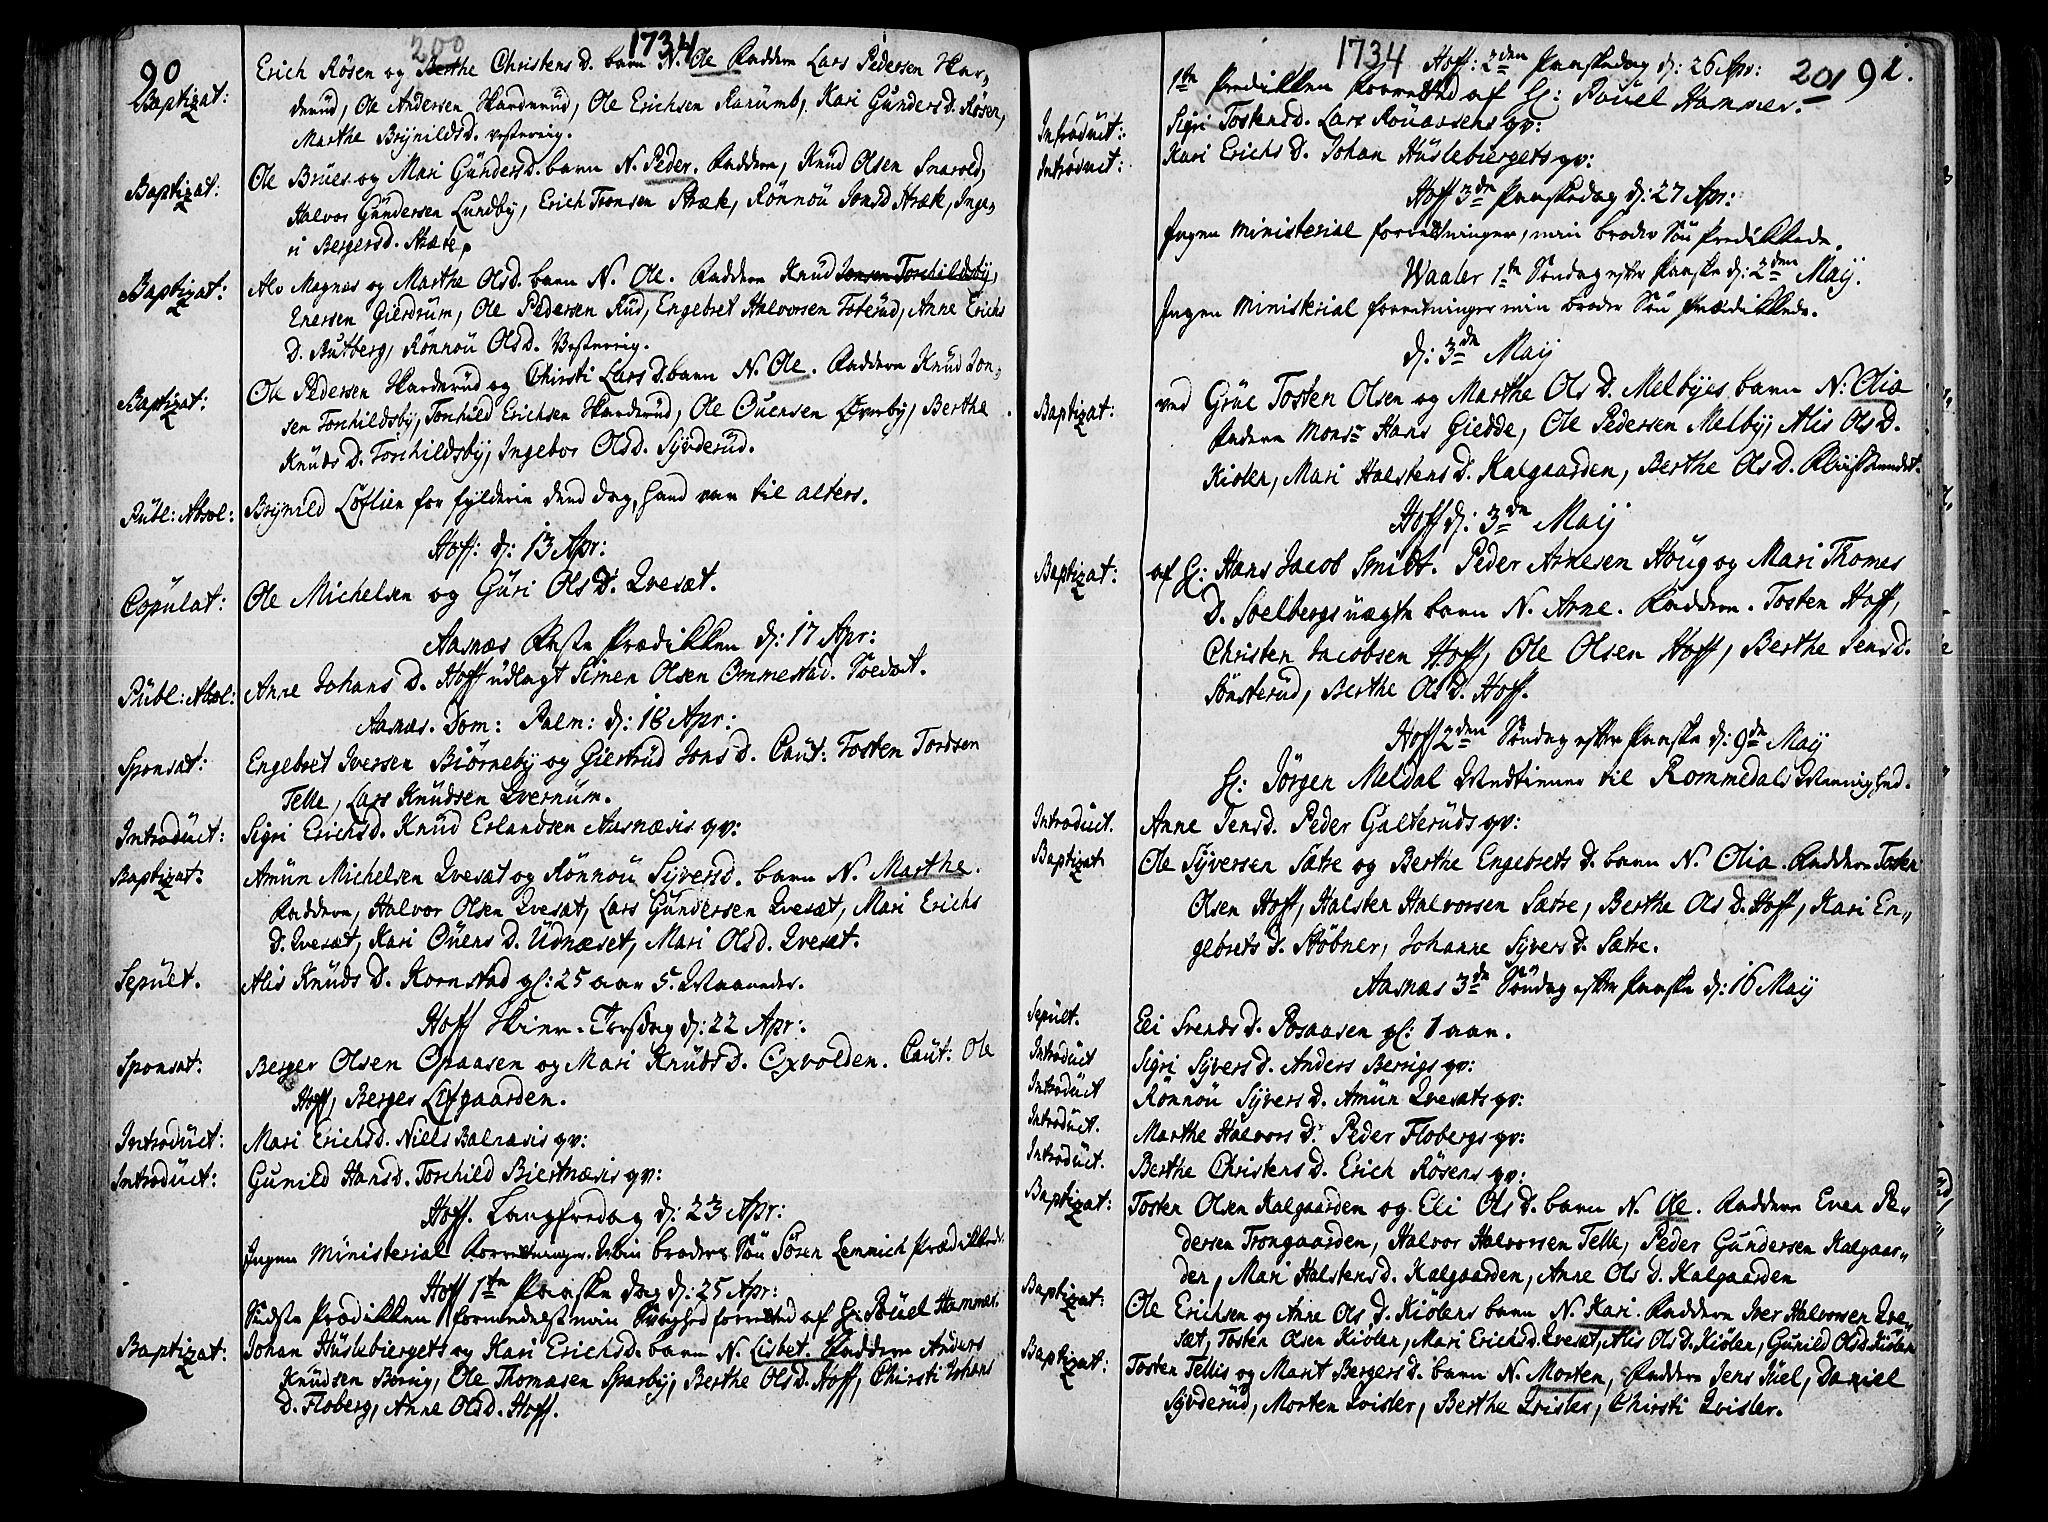 90
200
1734
Baptizat: Erich Rösen og Berthe Christens D. barn N. Ole Faddere Lars Pedersen Skar-
derud, Ole Andersen Skarderud, Ole Erichsen Rarumb, Kari Gunders D. Rösen,
Marthe Brÿnildsd. Vestereng.
Baptizat: Ole Brües og Mari Gündersd. barn N. Peder. Faddere, Knud Olsen Snarold,
Halvor Gündersen Lundby, Erich Tronsen Stræk, Rönnou Jonsd Stræk, Inge-
ri Bergersd. Stræte,
Baptizat: Alv Magnæs og Marthe Olsd. barn N. Ole. Faddere Knud Jonsen Torchildsbÿ,
Enersen Gierdrum, Ole Pedersen Rud, Engebret Halvorsen Toterud, Anne Erichs
D. Butberg, Rönnou Olsd. Vestereng.
Baptizat: Ole Pedersen Skarderud og Chirsti Lars D. barn N. Ole. Faddere Knud Jon-
sen Torchildsbÿ, Torchild Erichsen Skarderud, Ole Ouensen Överbÿ, Berthe
Knuds D. Torchildsbÿ, Ingebor Olsd. Sÿvderud.
Publ: Absol: Brÿnild Löflien for fylderie dend dag, hand var til alters.
Hoff: d: 13 Apr:
Copulat: Ole Michelsen og Guri Olsd. Qvesæt.
Aasnæs Præste Prædikken d: 17 Apr:
Publ: Absol: Anne Johans D. Hoff udlagt Simen Olsen Ommestad. Soedat.
Aasnæs. Dom: Palm: d: 18 Apr:
Sponsat: Engebret Iversen Biörneby og Giertrud Jons D. Caut: Tosten Tordsen
Telle, Lars Knudsen Qvernum.
Introduct: Sigri Erichsd. Knud Erlandsen Aasnæsis qv:
Baptizat: Amun Michelsen Qvesæt og Rönnou Sÿversd. barn N. Marthe.
Faddere, Halvor Olsen Qvesæt, Lars Gundersen Qvesæt, Mari Erichs
D. Qvesæt, Kari Ouens D. Udnæset, Mari Olsd. Qvesæt.
Sepult. Alis Knuds D. Kornstad gl: 25 aar 5. Maaneder.
Hoff Skier-Torsdag d: 22 Apr:
Sponsat: Berger Olsen Opaasen og Mari Knudsd. Oxvolden. Caut: Ole
Hoff, Berger Lifgaarden.
Introduct: Mari Erichsd. Niels Balnæsis qv:
Introduct: Gunild Hansd. Torchild Biertnæsis qv:
Hoff. Langfredag d: 23 Apr:
Ingen Ministerial Forretninger. Min broders Sön Sören Lemmich Prædikked.
Hoff 1te Paaske dag d: 25 Apr:
Sidste Prædikken formedelst min Svaghed forretted af Hr: Pouel Hammer.
Baptizat: Johan Huslebiergets og Kari Erichsd. barn N. Lisbet. Faddere Anders
Knudsen Börrig, Ole Thomæsen Sparbÿ, Berthe Olsd. Hoff, Chirsti Johans
D. Floberg, Anne Olsd. Hoff.
1734
201
91.
Hoff: 2den Paaskedag d: 26 Apr:
1te Prædikken forrettед af Hr: Pouel Hammer.
Introduct: Sigri Tostensd. Lars Rouansens qv:
Introduct: Kari Erichs D. Johan Huslebiergets qv:
Hoff 3de Paaskedag d: 27 Apr:
Ingen Ministerial forretninger, min broder Sön Prædikkede.
Waaler 1te Söndag efter Paaske d: 2den Maÿ.
Ingen Ministerial forretninger min broder Sön Prædikkede.
d: 3de Maÿ
Baptizat: ved Grue Tosten Olsen og Marthe Ols D. Melbÿes barn N: Olia
Faddere Monsr Hans Giedde, Ole Pedersen Melbÿ, Alis Ols D.
Kiölen, Mari Halstens D. Kalgaarden, Berthe Ols D.
Hoff d: 3de Maÿ
Baptizat: af Hr: Hans Jacob Smidt. Peder Arnesen Houg og Mari Thomes
D. Soelbergs uægte barn N. Arne. Faddere. Tosten Hoff,
Christen Jacobsen Hoff, Ole Olsen Hoff, Berthe Jensd.
Sönsterud, Berthe Ols D. Hoff.
Hoff 2den Söndag efter Paaske d: 9de Maÿ
Hr: Jörgen Meldal Medtiener til Rommedals Menighed.
Introduct. Anne Jensd. Peder Galteruds qv:
Baptizat Ole Sÿversen Sætre og Berthe Engebrets D. barn N. Olia. Faddere Tosten
Olsen Hoff, Halsten Halvorsen Sætre, Berthe Ols D. Hoff, Kari En-
gebrets D. Stöbner, Johanne Sÿvers D. Sætre.
Aasnæs 3de Söndag efter Paaske d: 16 Maÿ
Sepult. Eli Svends D. Posaasen gl: 1 aar.
Introduct Sigri Sÿvers D. Anders Berrigs qv:
Introduct Rönnou Sÿvers D. Amun Qvesæts qv:
Introduct. Marthe Halvors D. Peder Flobergs qv:
Introduct. Berthe Christens D. Erich Rösens qv:
Baptizat: Tosten Olsen Kalgaarden og Eli Ols D. barn N. Ole. Faddere Even Pe-
dersen Trongaarden, Halvor Halvorsen Telle, Peder Gundersen Kalgaar-
den, Mari Halstensd. Kalgaarden, Anne Ols D. Kalgaarden
Baptizat: Ole Erichsen og Anne Ols D. Kiölens barn N. Kari. Faddere Iver Halvorsen Qve-
sæt, Tosten Olsen Kiölen, Mari Erichsd. Qvesæt, Alis Ols D. Kiölen, Gunild Olsd. Kiölen
Baptizat: Tosten Tellis og Marit Bergers D. barn N. Morten, Faddere Jens Juel, Daniel
Sÿvderud, Morten Qvisler, Berthe Qvisler, Chirsti Qvisler.